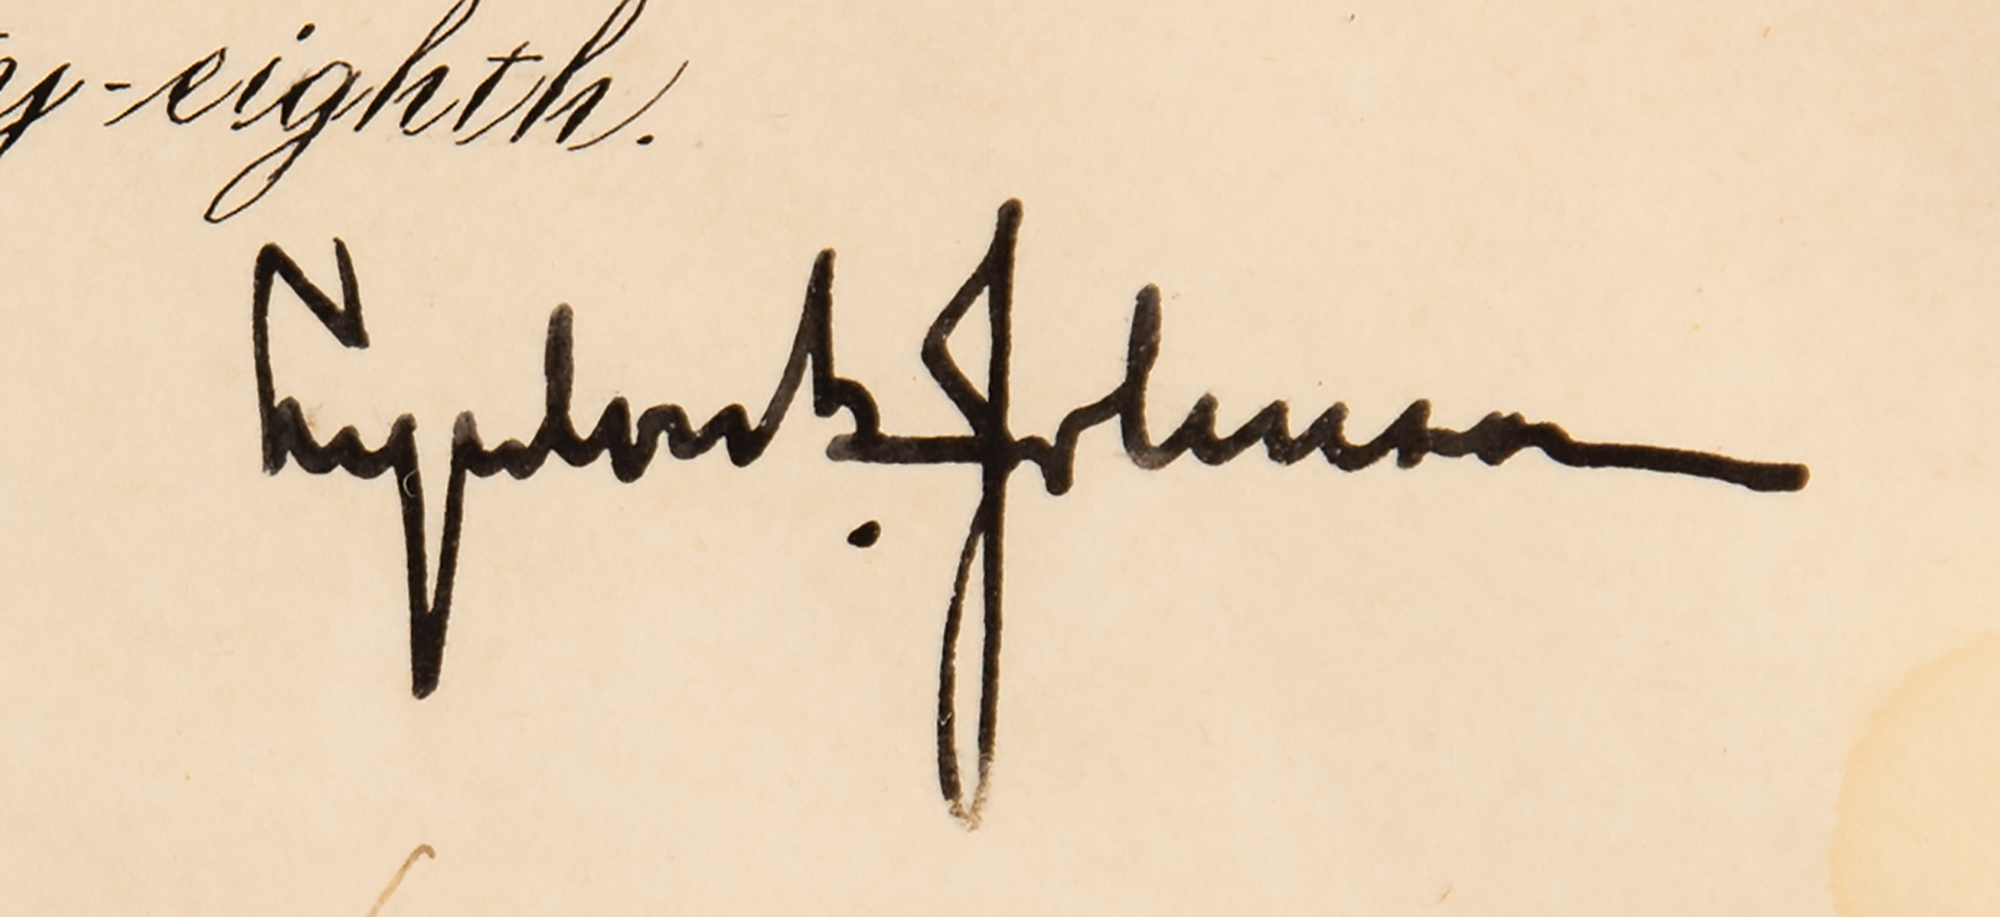 y-eighth.
Lyndon B. Johnson